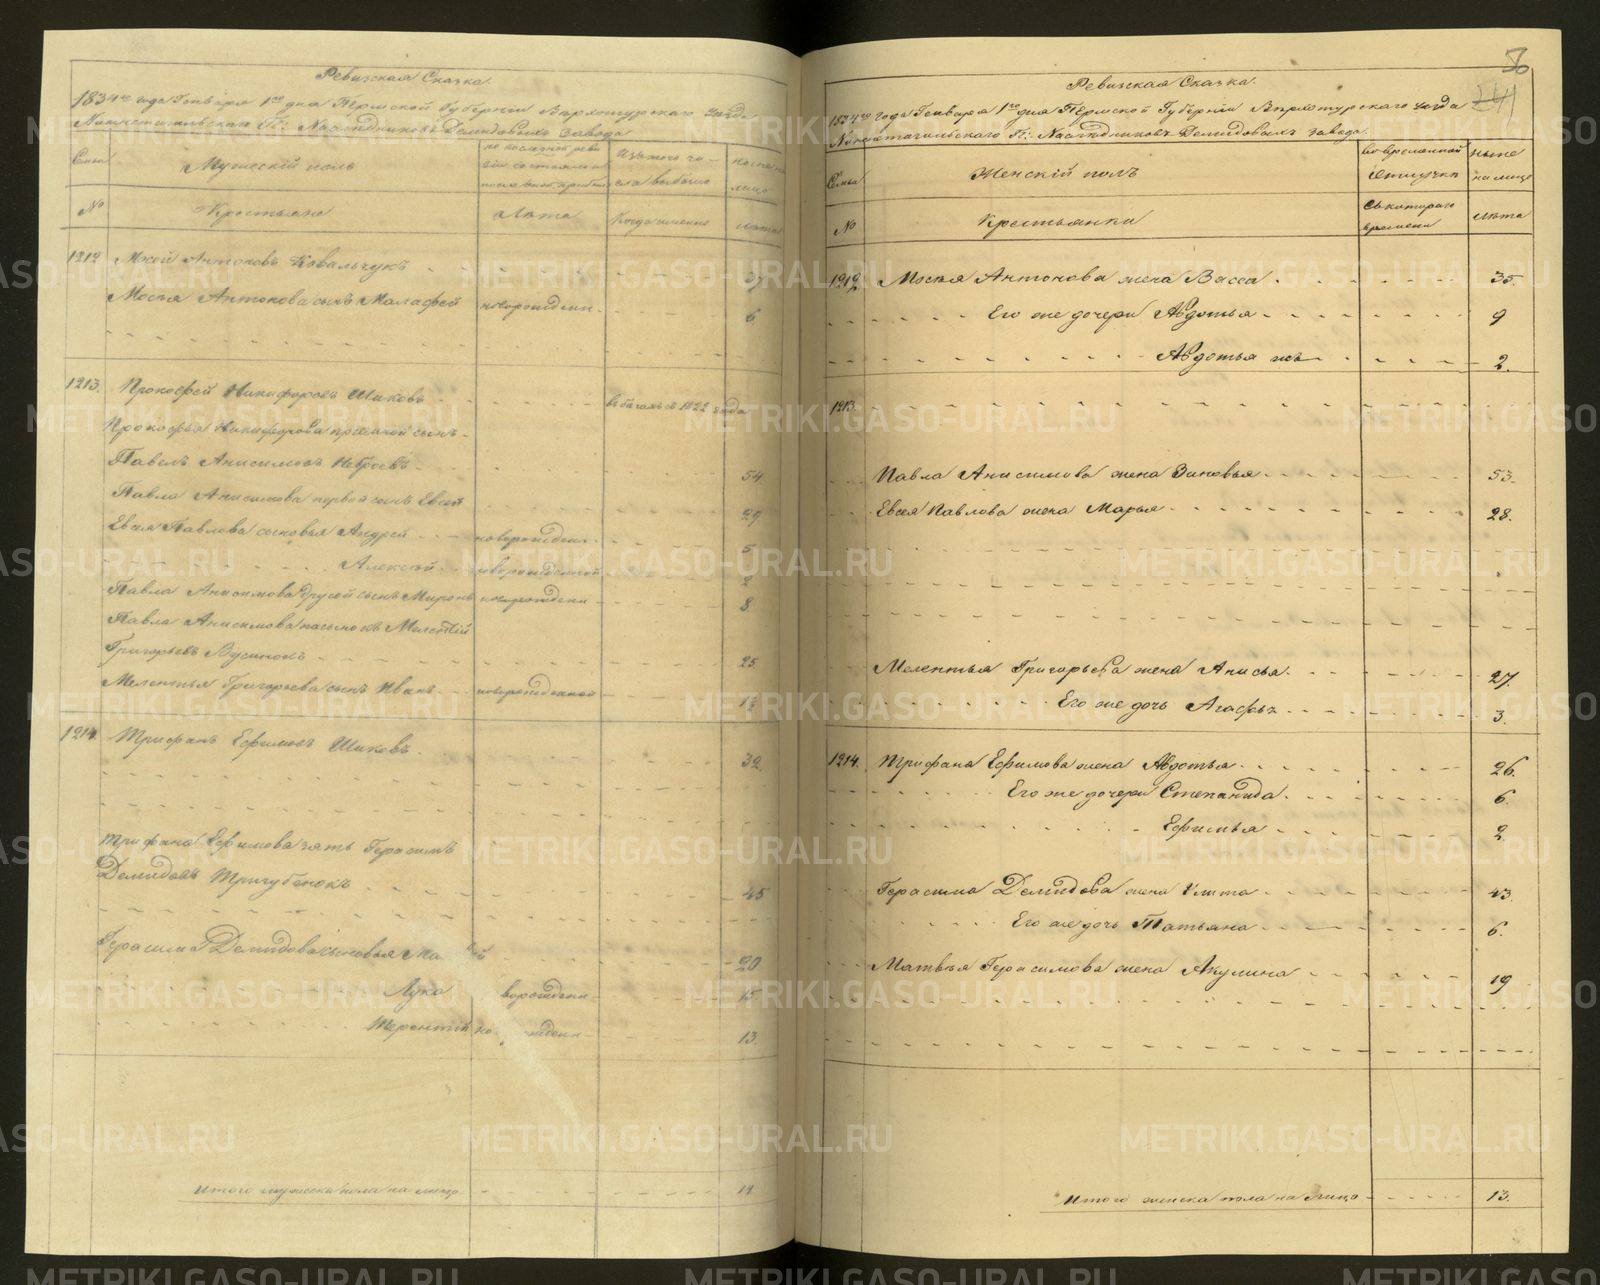 Ревизская Сказка.
1834го года Генваря 1го дня Пермской Губернии Верхотурского уезда
Нижнетагильского Гг: Наследниковъ Демидовыхъ завода
Семьи
Мужескій полъ
по последней реви
зіи состояло и
после оной прибы
Изъ того чи-
сла выбыло
ныне на
лицо
№
Крестьяне
Лѣта
Когда именно
лѣта
1212 Мосей Антоновъ Ковальчукъ 37
Мосея Антонова сынъ Малафей новорожден. 6
1213. Прокофей Никифоровъ Шиковъ. въ бегахъ с 1822 года
Прокофья Никифорова приемной сынъ
Павелъ Анисимовъ 54
Павла Анисимова первой сынъ Евсей 29
Евсея Павлова сыновья Андрей новорожден. 5
Алексей новорожденной 2
Павла Анисимова другой сынъ Миронъ новорожден 8
Павла Анисимова пасынокъ Мелентій
Григорьевъ 25
Мелентья Григорьева сынъ Иванъ новорожденной
1214. Трифанъ Ефимовъ Шиковъ. 32.
Трифана Ефимова зять Герасимъ
Демидовъ Тригубенокъ 45
Герасима Демидова сыновья Ма 20
Лука ворожден 15
Терентій но жден 13.
Итого мужеска пола на лицо
50
Ревизская Сказка.
1834го года Генваря 1го дня Пермской Губерніи Верхотурского уезда
Нижнетагильского Гг: Наследниковъ Демидовыхъ завода.
Семьи
Женскій полъ
во временной
отлучке
ныне
на лице
№
Крестьянки
Съ котораго
времени
лѣта
1212. Мосея Антонова жена Васса 35.
Его же дочери Авдотья 9
Авдотья жъ 2.
1213.
Павла Анисимова жена Зиновья 53.
Евсея Павлова жена Марья 28.
Мелентья Григорьева жена Анисья 27.
Его же дочь Агафья 3.
1214. Трифана Ефимова жена Авдотья 26.
Его же дочери Степанида. 6.
Ефимья 2
Герасима Демидова жена Улита 43.
Его же дочь Татьяна 6.
Матвея Герасимова жена Акулина 19
Итого женска пола на лицо 13.
METRIKI.GASO-URAL.RU